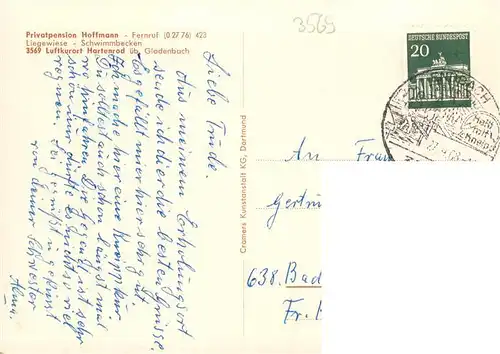 Privatpension Hoffmann - Fernruf (0 27 76) 423
Liegewiese - Schwimmbecken
3569 Luftkurort Hartenrod üb. Gladenbach
3569
DEUTSCHE BUNDESPOST
20
Liebe Trude.
Aus meinem Erholungsort
sende ich dir die besten Grüsse.
Es gefällt mir hier sehr gut
Ich mache hier eine Kneippkur
Du solltest auch schon längst mal
hinfahren. Die Gegend ist sehr
schön nur dürfte es nicht so viel
regnen. Sei gegrüßt u. geküsst
von deiner Schwester
Cramers Kunstanstalt KG, Dortmund
An Frau
Gertru
638. Bad
Fr.